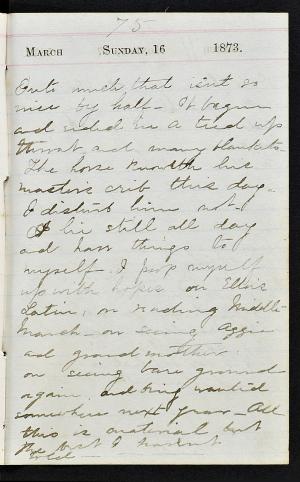 75
MARCH SUNDAY, 16 1873.
Oats much, that isnt so
nice by half - It began
and ended in a tied up
throat and many blankets -
The horse knoweth his
masters crib this day -
& disturb him not -
I lie still all day
and have things to
myself - I prop myself
up with hopes on Ella's
Latin, on reading Middle-
march - on seeing Aggie
and grandmother,
on seeing bare ground
again, and being wanted
somewhere next year - All
this is material but
the best I havent
tried -